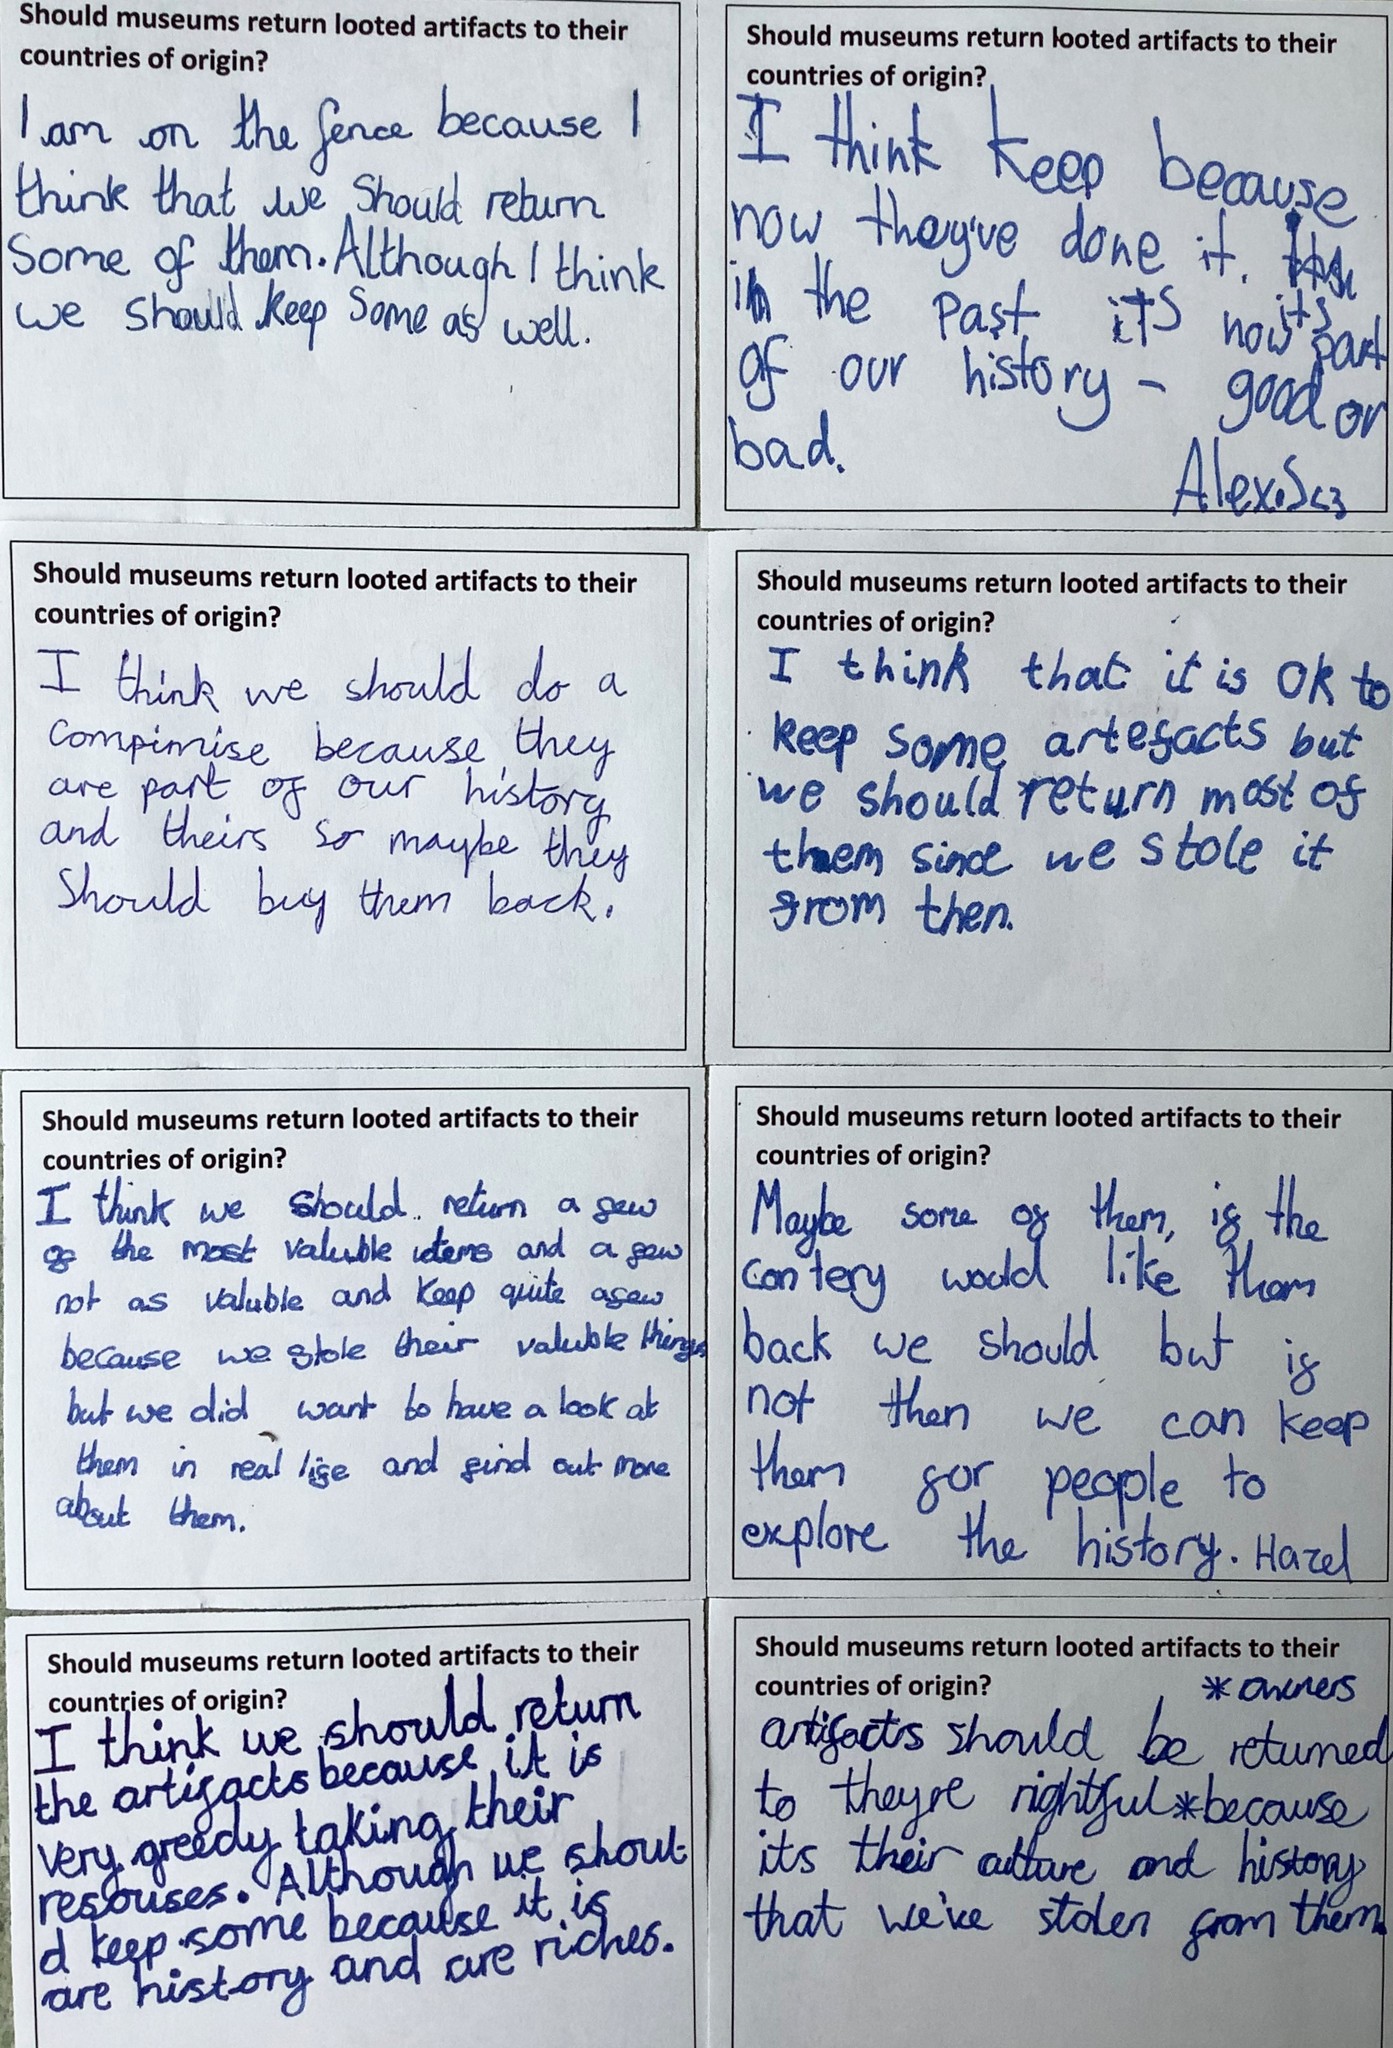 Should museums return looted artifacts to their
countries of origin?
I am on the fence because I
think that we Should return
Some of them. Although I think
we should keep Some as well.
Should museums return looted artifacts to their
countries of origin?
I think keep because
now they've done it.
in the past its now it's part
of our history - good or
bad.
Alex.S<3
Should museums return looted artifacts to their
countries of origin?
I think we should do a
compimise because they
are part of our history
and theirs so maybe they
Should buy them back.
Should museums return looted artifacts to their
countries of origin?
I think that it is OK to
keep some artefacts but
we should return most of
them since we stole it
from then.
Should museums return looted artifacts to their
countries of origin?
I think we should return a few
of the most valuble items and a few
not as valuble and keep quite afew
because we stole their valuble things
but we did want to have a look at
them in real life and find out more
about them.
Should museums return looted artifacts to their
countries of origin?
Maybe some of them, if the
contery would like them
back we should but if
not then we can keep
them for people to
explore the history. Hazel
Should museums return looted artifacts to their
countries of origin?
I think we should return
the artifacts because it is
very greedy taking their
resouses. Although we shoul
d keep some because it is
are history and are riches.
Should museums return looted artifacts to their
countries of origin?
*owners
artifacts should be returned
to theyre rightful*because
its their culture and history
that we've stolen from them.